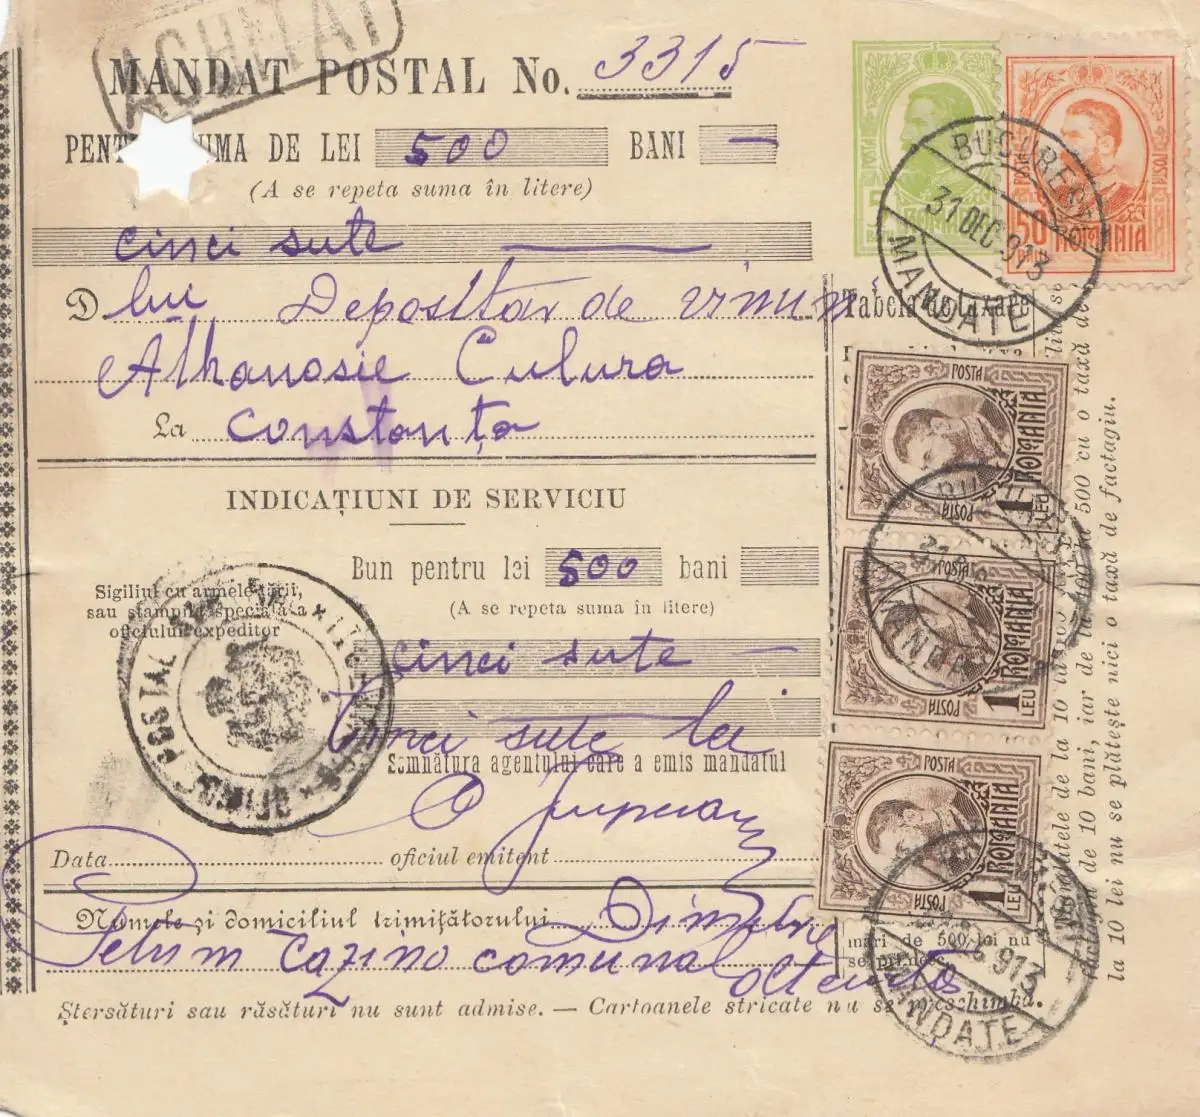 ACHITAT
MANDAT POSTAL No. 3315
SUMA DE LEI 500 BANI —
(A se repeta suma în litere)
cinci sute
D lui Depositar de vinuri
Athanasie Culura
La constanța
INDICAȚIUNI DE SERVICIU
Bun pentru lei 500 bani
(A se repeta suma în litere)
Sigiliul cu armele țării,
sau stampila specială a
oficiului expeditor
cinci sute —
Cinci sute lei
Semnătura agentului care a emis mandatul
Data
oficiul emitent
Numele și domiciliul trimițătorului Dimitrie
cazino comunal oltenița
Ștersături sau răsături nu sunt admise. — Cartoanele stricate nu se preschimbă.
BUCUREȘTI
31 DEC 913
MANDATE
POSTA
50
BANI
ROMANIA
Tabela de taxare
POSTA
ROMANIA
1 LEU
POSTA
POSTA
ROMANIA
1 LEU
POSTA
POSTA
ROMANIA
1 LEU
POSTA
913
MANDATE
mari de 500 lei nu
se primesc
Mandatele de la 10 la 100
500 cu o taxă de
factagiu de 10 bani, iar de la 100 la
la 10 lei nu se plătește nici o taxă de factagiu.